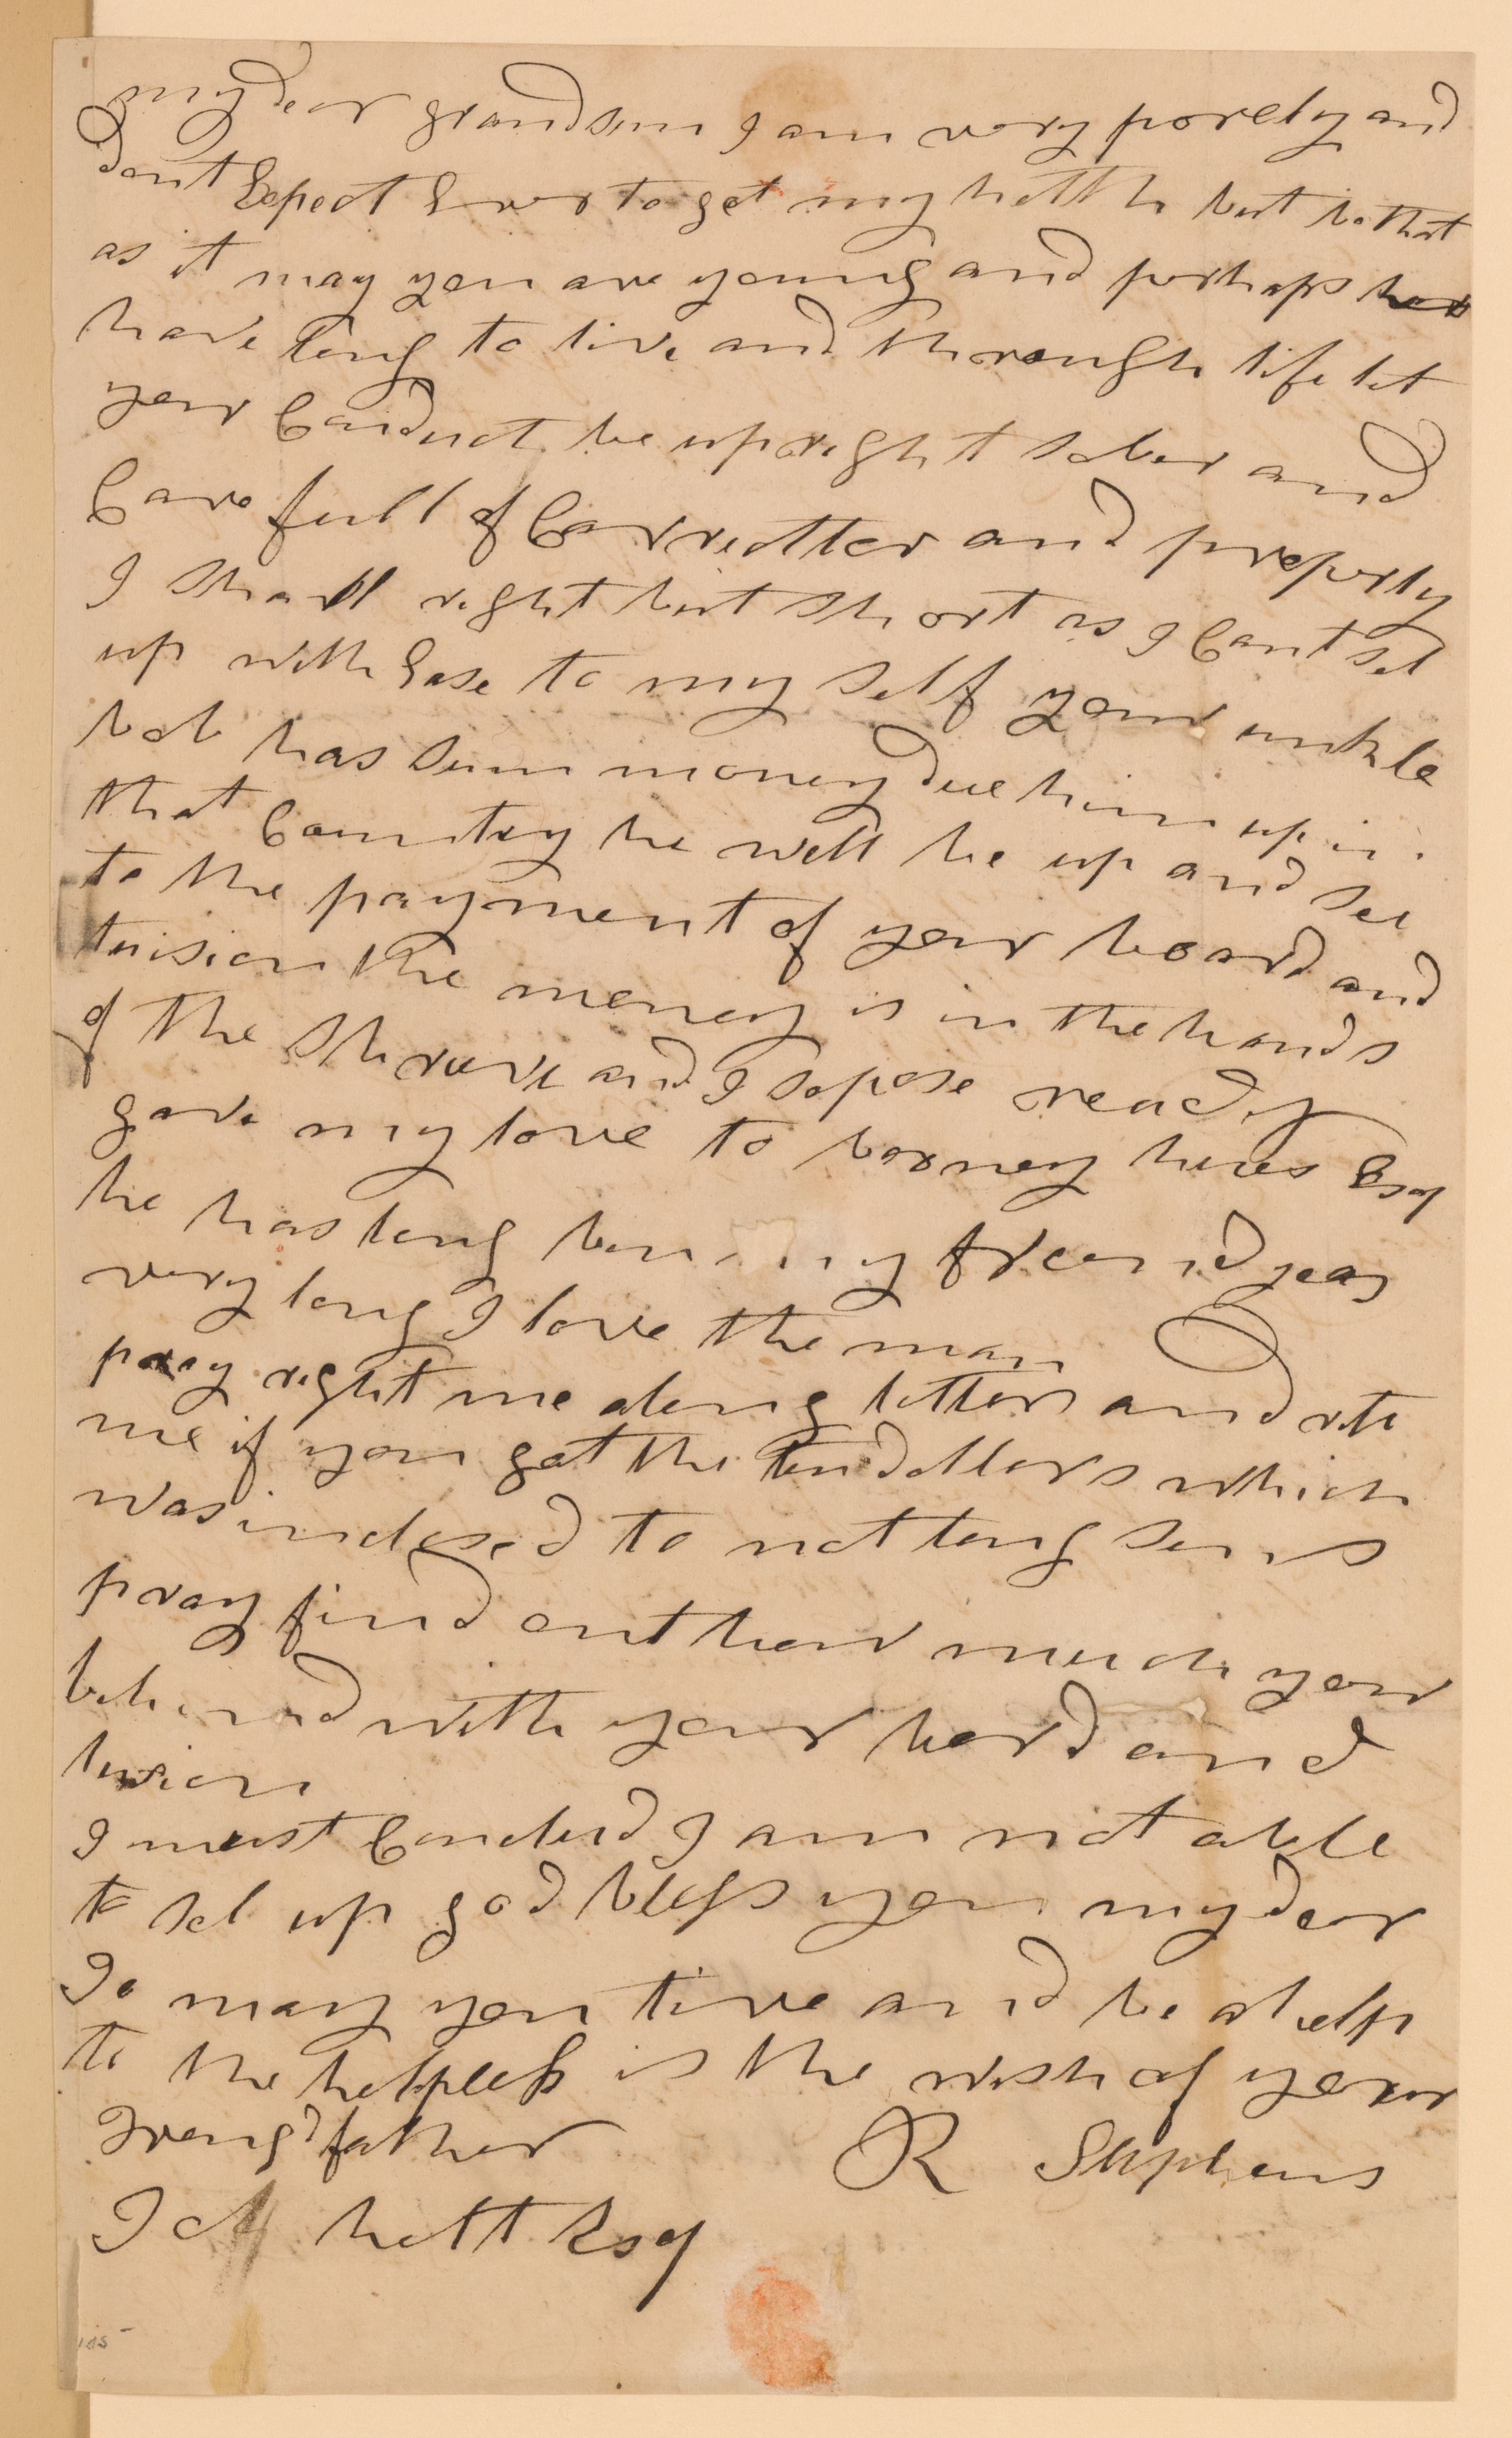 my dear grandson I am very porely and
dont Expect Ever to get my hetth but be that
as it may you are young and perhaps
have long to live and through life let
your Conduct be upright sober and
Carefull of Carrictter and property
I shall right but short as I Cant set
up with Ease to my self your unkle
bob has sum money due him up in
that Country he will be up and see
to the payment of your board and
tuision the money is in the hands
of the Shreeve and I sopose ready
gave my love to barney hires Esq
he has long ben my freend yeas
very long I love the man
pray right me along letter and rite
me if you got the ten dollars which
was inclosed to not long senes
pray find out how much your
behind with your bord and
tusion
I must Conclud I am not able
to set up god bless you my dear
Jo may you live and be a help
to the helpless is the wish of your
Grangfather R Stephens
J hett Esq